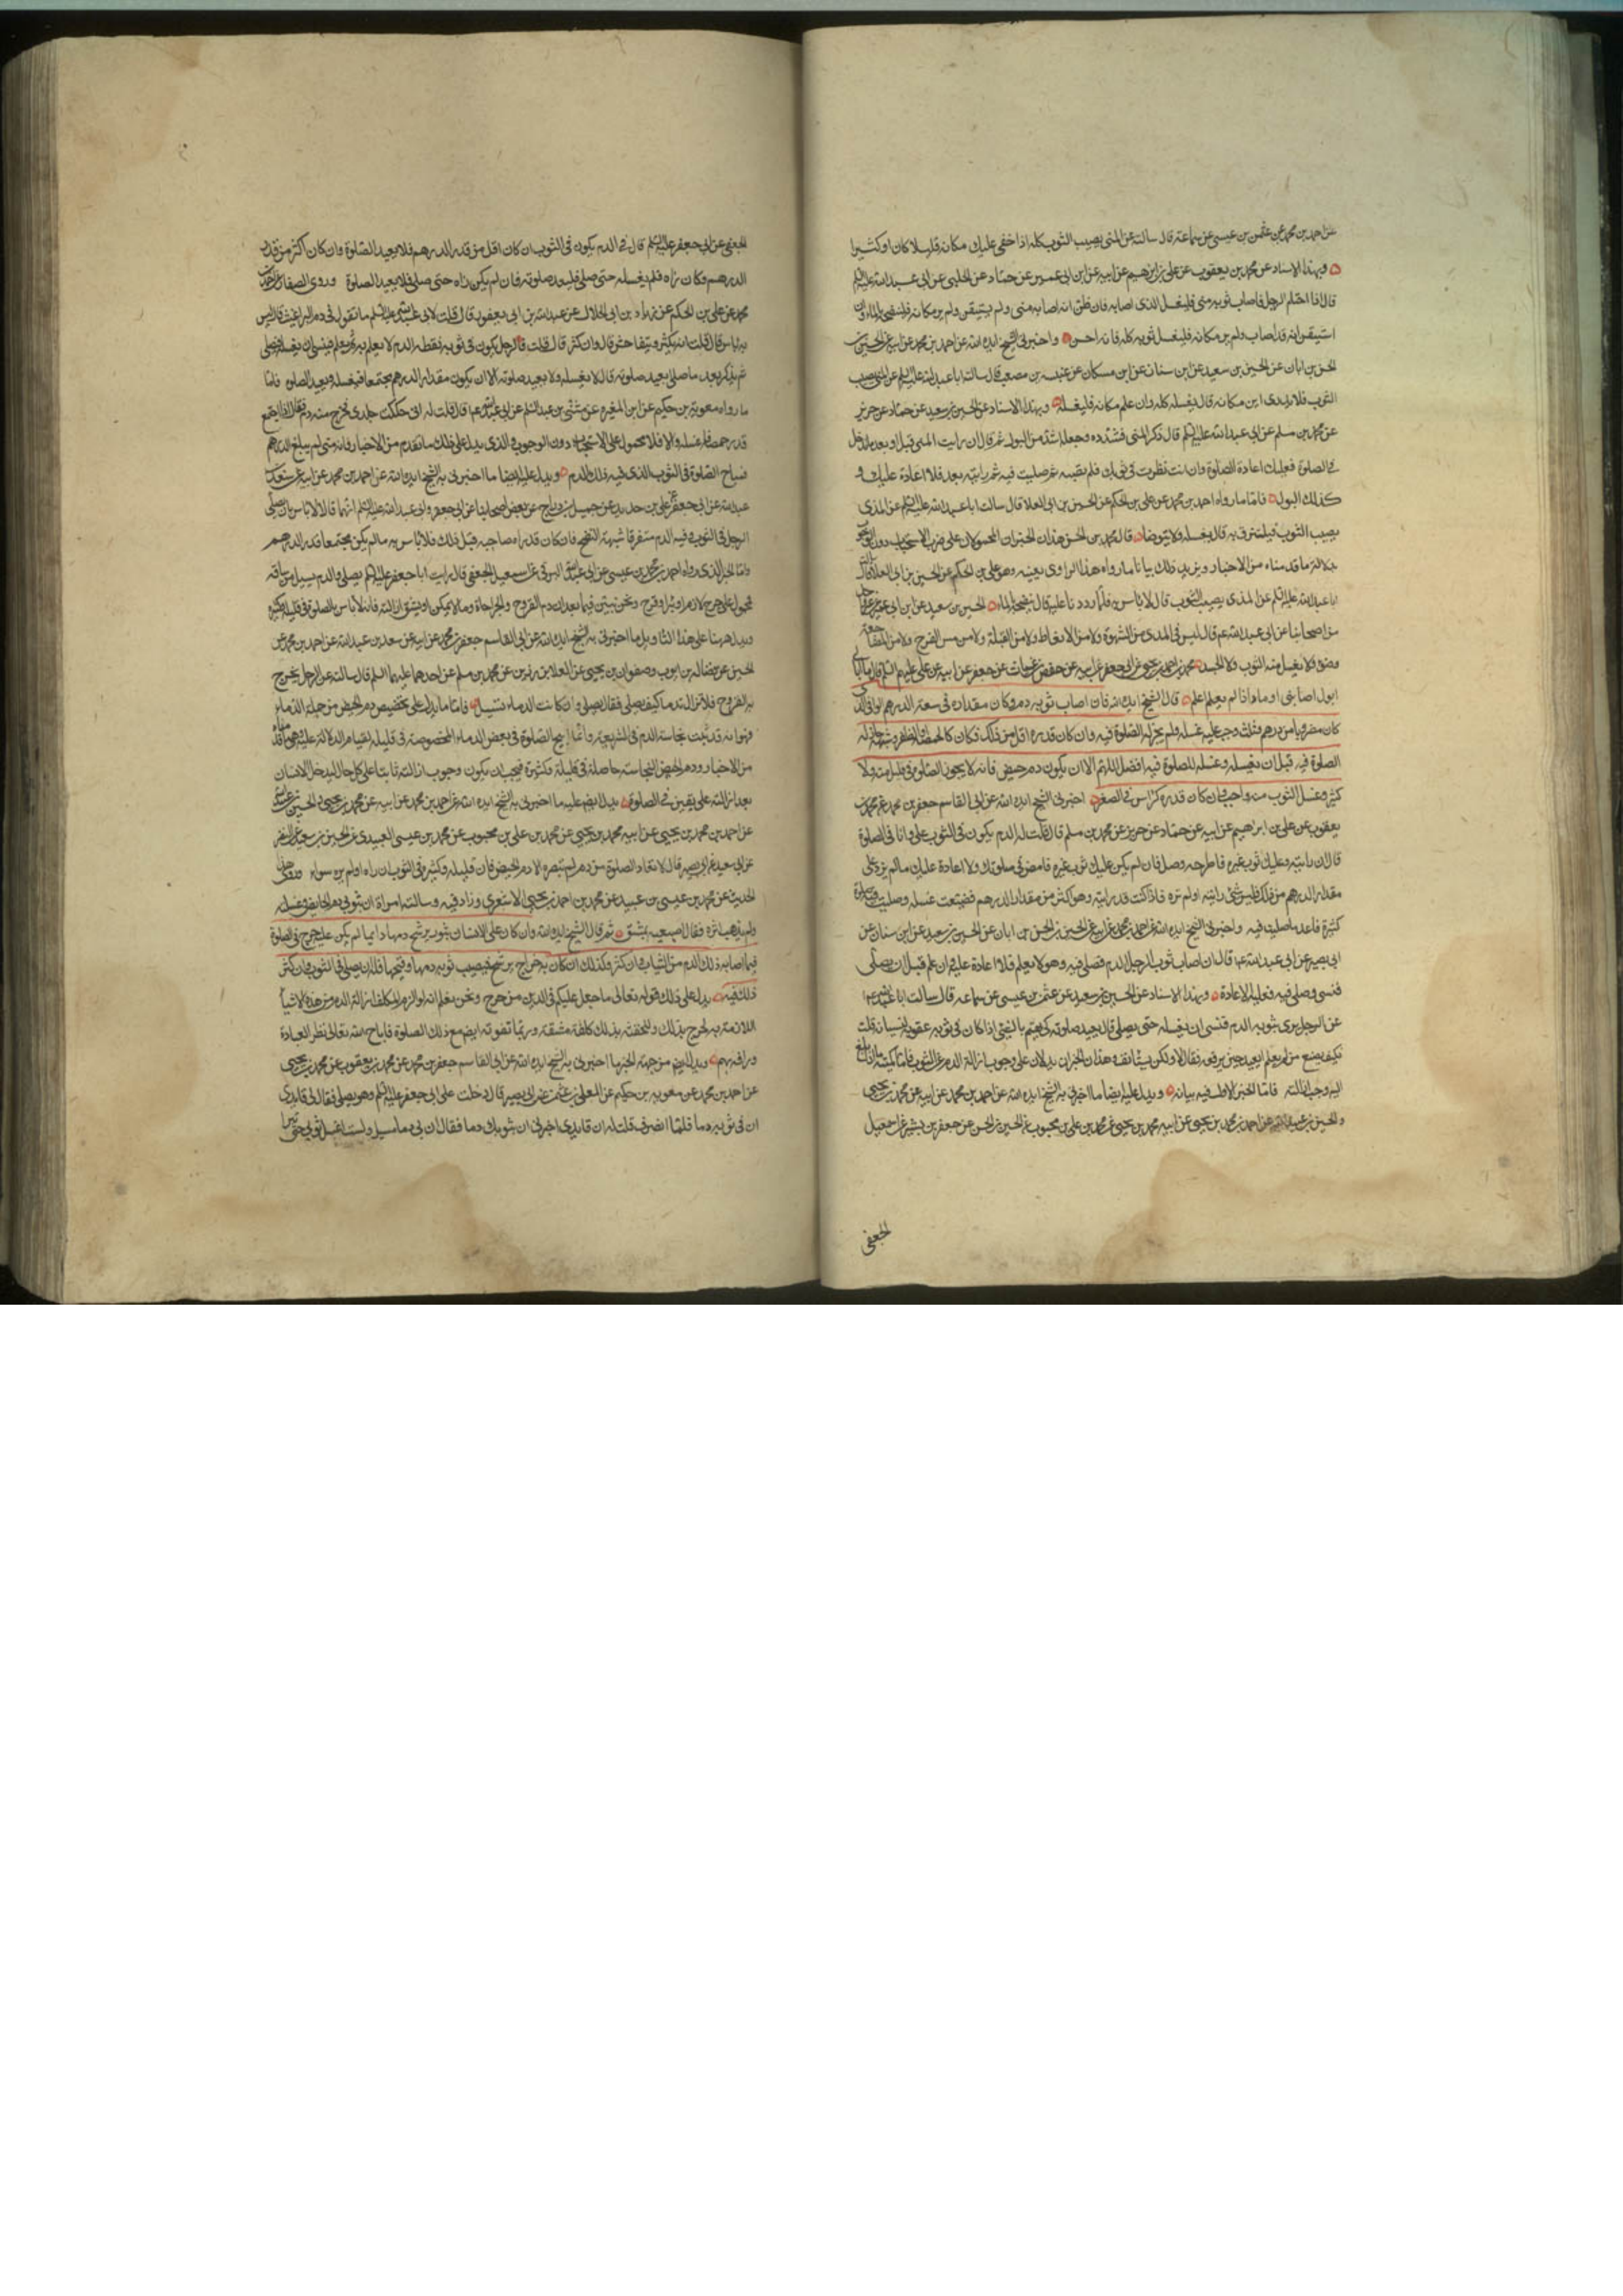 عن احمد بن محمد عن عثمن بن عيسى عن سماعة قال سالته عن المنى يصيب الثوب قال اغسل الثوب كله اذا خفى عليك مكانه قليلا كان او كثيرا
وبهذا الاسناد عن محمد بن يعقوب عن على بن ابرهيم عن ابيه عن ابن ابى عمير عن حماد عن الحلبى عن ابى عبد الله عليه السلم
قال اذا احتلم الرجل فاصاب ثوبه منى فليغسل الذى اصابه فان ظن انه اصابه منى ولم يستيقن ولم ير مكانه فلينضحه بالماء وان
استيقن انه قد اصابه ولم ير مكانه فليغسل ثوبه كله فانه احسن واخبرنى الشيخ ايده الله عن احمد بن محمد عن ابيه عن الحسين بن
الحسن بن ابان عن الحسين بن سعيد عن ابن سنان عن ابن مسكان عن عنبسة بن مصعب قال سالت ابا عبد الله عليه السلم عن المنى يصيب
الثوب فلا يدرى اين مكانه قال يغسله كله وان علم مكانه فليغسله وبهذا الاسناد عن الحسين بن سعيد عن حماد عن حريز
عن محمد بن مسلم عن ابى عبد الله عليه السلم قال ذكر المنى فشدده وجعله اشد من البول ثم قال ان رايت المنى قبل او بعد ما تدخل
فى الصلوة فعليك اعادة الصلوة وان انت نظرت فى ثوبك فلم تصبه ثم صليت فيه ثم رايته بعد فلا اعادة عليك و
كذلك البول فاما ما رواه احمد بن محمد عن على بن الحكم عن الحسين بن ابى العلا قال سالت ابا عبد الله عليه السلم عن المذى
يصيب الثوب فيلتزق به قال يغسله ولا يتوضا قال محمد بن الحسن هذان الخبران المحمولان على ضرب الاستحباب دون الوجوب
بدلالة ما قدمناه من الاخبار ويزيد ذلك بيانا ما رواه هذا الراوى بعينه وهو على بن الحكم عن الحسين بن ابى العلا قال سالت
ابا عبد الله عليه السلم عن المذى يصيب الثوب قال لا باس به فلما رددنا عليه قال ينضحه بالماء الحسين بن سعيد عن ابن ابى عمير عن غير واحد
من اصحابنا عن ابى عبد الله ع قال ليس فى المذى من الشهوة ولا من الانعاظ ولا من القبلة ولا من مس الفرج ولا من المضاجعة
وضوء ولا يغسل منه الثوب ولا الجسد محمد بن احمد بن يحيى عن ابى جعفر عن ابيه عن حفص بن غياث عن جعفر عن ابيه عن على عليهم السلم قال ما ابالى
ابول اصابنى او ماء اذا لم يعلم اعلم قال الشيخ ايده الله فان اصاب ثوبه دم وكان مقداره فى سعة الدرهم الوافى الذى
كان مضروبا من درهم وثلث وجب عليه غسله ولم يجز له الصلوة فيه وان كان قدره اقل من ذلك فكان كالحمصة او الظفر وشبهه جاز له
الصلوة فيه قبل ان يغسله وغسله للصلوة فيه افضل اللهم الا ان يكون دم حيض فانه لا يجوز الصلوة فى قليل منه ولا
كثير وغسل الثوب منه واجب وان كان قدره كراس فى الصغر اخبرنى الشيخ ايده الله عن ابى القاسم جعفر بن محمد عن محمد بن
يعقوب عن على بن ابراهيم عن ابيه عن حماد عن حريز عن محمد بن مسلم قال قلت له الدم يكون فى الثوب على وانا فى الصلوة
قال ان رايته وعليك ثوب غيره فاطرحه وصل فان لم يكن عليك ثوب غيره فامض فى صلوتك ولا اعادة عليك ما لم يزد على
مقدار الدرهم من ذلك فليس بشى رايته او لم تره فاذا كنت قد رايته وهو اكثر من مقدار الدرهم فضيعت غسله وصليت فيه صلوة
كثيرة فاعد ما صليت فيه واخبرنى الشيخ ايده الله عن احمد بن محمد عن ابيه عن الحسين بن الحسن بن ابان عن الحسين بن سعيد عن ابن سنان عن
ابى بصير عن ابى عبد الله ع قال ان اصاب ثوب الرجل الدم فصلى فيه وهو لا يعلم فلا اعادة عليه وان علم قبل ان يصلى
فنسى وصلى فيه فعليه الاعادة وبهذا الاسناد عن الحسين بن سعيد عن عثمن بن عيسى عن سماعة قال سالت ابا عبد الله ع
عن الرجل يرى بثوبه الدم فنسى ان يغسله حتى يصلى قال يعيد صلوته كى يهتم بالشى اذا كان فى ثوبه عقوبة لنسيانه قلت
فكيف يصنع من لم يعلم ايعيد حين يرفعه فقال لا ولكن يستانف وهذان الخبران يدلان على وجوب ازالة الدم عن الثوب فاما كميته ما اذا بلغ
اليه وجب ازالته فاما الخبر الاول فيه بيانه ويدل عليه ايضا ما اخبرنى به الشيخ ايده الله عن احمد بن محمد عن ابيه عن محمد بن يحيى
والحسين بن عبيد الله عن احمد بن محمد بن يحيى عن ابيه محمد بن يحيى عن محمد بن على بن محبوب عن الحسين بن الحسن عن جعفر بن بشير عن اسمعيل
الجعفى
الجعفى عن ابى جعفر عليه السلم قال فى الدم يكون فى الثوب ان كان اقل من قدر الدرهم فلا يعيد الصلوة وان كان اكثر من قدر
الدرهم وكان راه فلم يغسله حتى صلى فليعد صلوته فان لم يكن راه حتى صلى فلا يعيد الصلوة وروى الصفار عن احمد بن
محمد عن على بن الحكم عن زياد بن ابى الحلال عن عبد الله بن ابى يعفور قال قلت لابى عبد الله عليه السلم ما تقول فى دم البراغيث قال ليس
به باس قال قلت انه يكثر ويتفاحش قال وان كثر قال قلت فالرجل يكون فى ثوبه نقط الدم لا يعلم به ثم يعلم فينسى ان يغسله فيصلى
ثم يذكر بعد ما صلى ايعيد صلوته قال لا يغسله ولا يعيد صلوته الا ان يكون مقدار الدرهم مجتمعا فيغسله ويعيد الصلوة فاما
ما رواه معوية بن حكيم عن ابن المغيرة عن مثنى بن عبد السلم عن ابى عبد الله ع قال قلت له انى حككت جلدى فخرج منه دم فقال اذا اجتمع
قدر حمصة فاغسله والا فلا محمول على الاستحباب دون الوجوب والذى يدل على ذلك ما تقدم من الاخبار وانه متى لم يبلغ الدرهم
فمباح الصلوة فى الثوب الذى فيه ذلك الدم ويدل عليه ايضا ما اخبرنى به الشيخ ايده الله عن احمد بن محمد عن ابيه عن سعد بن
عبد الله عن ابى جعفر عن على بن حديد عن جميل بن دراج عن بعض اصحابنا عن ابى جعفر وابى عبد الله عليهما السلم انهما قالا لا باس بان يصلى
الرجل فى الثوب وفيه الدم متفرقا شبه النضح فان كان قد راه صاحبه قبل ذلك فلا باس به ما لم يكن مجتمعا قدر الدرهم
واما الخبر الذى رواه احمد بن محمد بن عيسى عن ابى عبد الله البرقى عن اسمعيل الجعفى قال رايت ابا جعفر عليه السلم يصلى والدم يسيل من ساقه
محمول على جرح لازم او بثرا وقرح ونحن نبين فيما بعد ان دم القروح والجراحات وما لا يمكن او يشق ازالته فانه لا باس بالصلوة فى قليله وكثيره
ويدل ههنا على هذا التاويل ما اخبرنى به الشيخ ايده الله عن ابى القاسم جعفر بن محمد عن ابيه عن سعد بن عبد الله عن احمد بن محمد عن
الحسين عن فضالة بن ايوب وصفوان بن يحيى عن العلا بن رزين عن محمد بن مسلم عن احدهما عليهما السلم قال سالته عن الرجل يخرج
به القروح فلا تزال تدما كيف يصلى فقال يصلى وان كانت الدماء تسيل فاما ما يدل على تخصيص دم الحيض من جملة الدماء
فهو انه قد ثبت نجاسة الدم فى الشريعة وانما ابيح الصلوة فى بعض الدماء المخصوصة فى قليله لقيام الدلالة عليه وهو ما قدمناه
من الاخبار ودم الحيض النجاسة حاصلة فى قليله وكثيره فيجب ان يكون وجوب ازالته ثابتا على كل حال ليدخل الانسان
بعد ازالته على يقين فى الصلوة ويدل ايضا عليه ما اخبرنى به الشيخ ايده الله عن احمد بن محمد عن ابيه عن محمد بن يحيى والحسين بن عبيد الله
عن احمد بن محمد بن يحيى عن ابيه محمد بن يحيى عن محمد بن على بن محبوب عن محمد بن عيسى العبيدى عن الحسين بن سعيد عن النضر
عن ابى سعيد عن ابى بصير قال لا تعاد الصلوة من دم لم تبصره الا دم الحيض فان قليله وكثيره فى الثوب ان راه او لم يره سواء وروى هذا
الحديث عن محمد بن عيسى بن عبيد عن محمد بن احمد بن يحيى الاشعرى وزاد فيه وسالته امراة ان بثوبى دم الحايض وغسلته
ولم يذهب اثره فقال اصبغيه بمشق ثم قال الشيخ ايده الله وان كان على الانسان بثور يرشح دمها دايما لم يكن عليه حرج فى الصلوة
فيما اصابه ذلك الدم من الثياب وان كثر وكذلك ان كان به جراح يرشح فيصيب ثوبه دمها وقيحها فله ان يصلى فى الثوب وان كثر
ذلك فيه يدل على ذلك قوله تعالى ما جعل عليكم فى الدين من حرج ونحن نعلم انه لو الزم المكلف ازالة الدم من هذه الاشياء
اللازمة به لحرج بذلك وللحقته بذلك كلفة ومشقة وربما تفوته ايضا مع ذلك الصلوة فاباح الله تعالى نظرا لعباده
ورافة بهم ويدل ايضا من جهة الخبر ما اخبرنى به الشيخ ايده الله عن ابى القاسم جعفر بن محمد عن محمد بن يعقوب عن محمد بن يحيى
عن احمد بن محمد عن معوية بن حكيم عن المعلى بن عثمن عن ابى بصير قال دخلت على ابى جعفر عليه السلم وهو يصلى فقال لى قايدى
ان فى ثوبه دما فلما انصرف قلت له ان قايدى اخبرنى ان بثوبك دما فقال ان بى دماميل ولست اغسل ثوبى حتى تبرا